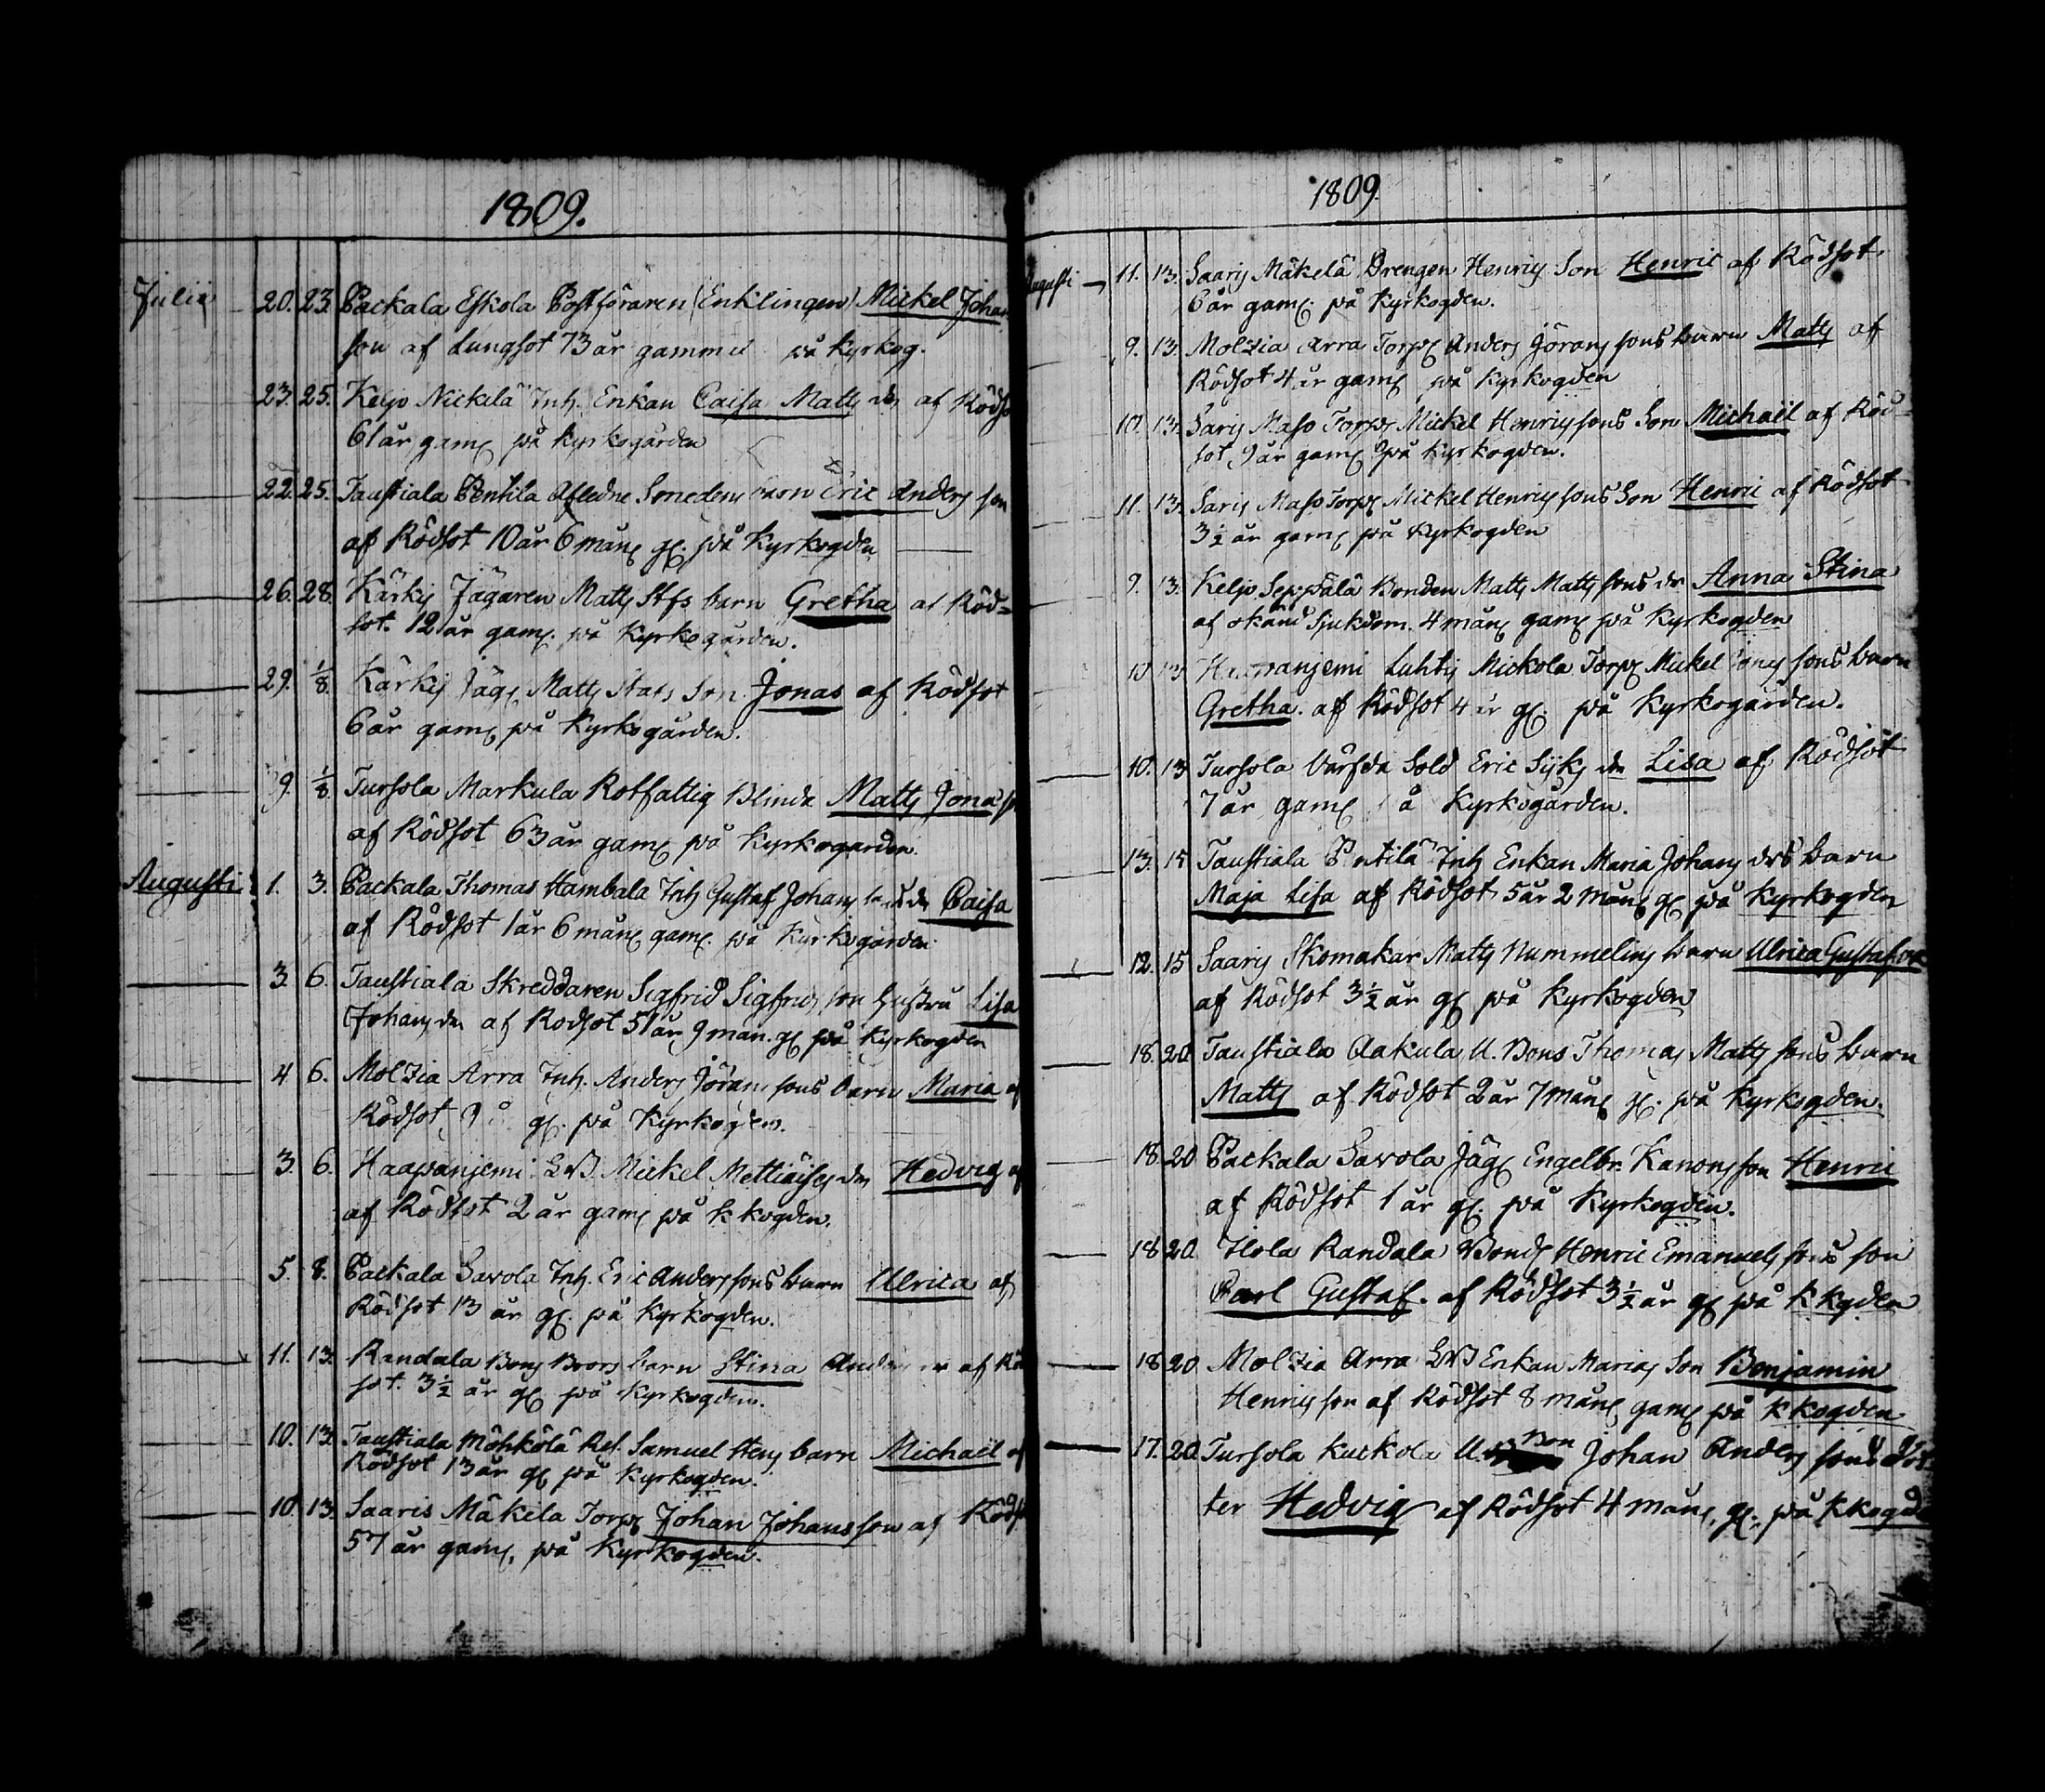 1809.
Julii 20. 23. Packala Eskola Postföraren (Enklingen) Mickel Johan
son af Lungsot 73 år gammel på Kyrkog.
23. 25. Keljo Nickilä Inh. Enkan Caisa Matts dr af Rödso
61 år gam på kyrkogården
22. 25. Taustiala Pentila Afledne Smedens barn Eric Anders son
af Rödsot 10 år 6 mån gl. på Kyrkogden
26. 28. Kärkis Jägaren Matts Stfs barn Gretha af Röd=
sot. 12 år gam. på Kyrkogården.
29. 1/8. Kärkis Jäg Matts Stafs Son Jonas af Rödsot
6 år gam på Kyrkogården.
9. 1/8. Tursola Markula Rotfattig Blinda Matts Jona
af Rödsot 63 år gam på Kyrkogården.
Augusti 1. 3. Packala Thomas Hambala Inh Gustaf Johans sons dr Caisa
af Rödsot 1 år 6 mån gam. på Kyrkogården.
3. 6. Taustiala Skreddaren Sigfrid Sigfrids son hustru Lisa
Johans dr af Rodsot 51 år 9 mån. gl på Kyrkogden
4 6. Molzia Arra Inh. Anders Jörans sons barn Maria af
Rödsot 9 gl. på Kyrkogden.
3. 6. Haapanjemi Mickel Mettiäises dr Hedvig
af Rödsot 2 år gam på k kogden.
5. 8. Packala Savola Inh. Eric Anders sons barn Ulrica af
Rödsot 13 år gl. på Kyrkogden.
11. 13. Randala Bons Brors barn Stina af
sot. 3½ år gl på Kyrkogden.
10. 13. Taustiala Möhkölä Ref. Samuel Stens barn Michaël af
Rödsot 13 år gl på Kyrkogden.
10. 13. Saaris Mäkela Torp Johan Johansson af
57 år gam, på Kyrkogden.
1809.
Augusti 11. 13. Saaris Mäkelä Drengen Henris Son Henric af Rödsot
6 år gam. på Kyrkogden.
9. 13. Molzia Arra Torp Anders Jörans sons barn Matts af
Rödsot 4 år gam på Kyrkogden
10. 13. Saris Maso Torp Mickel Henris sons Son Michaël af Röd=
sot 9 år gam på Kyrkogden.
11. 13. Saris Maso Torp Mickel Henris sons Son Henric af Rödsot
3½ år gam på Kyrkogden
9. 13. Keljo Seppälä Bonden Matts Matts sons dr Anna Stina
af okänd Sjukdom. 4 mån gam på Kyrkogden
10 13 Luhtis Mickola Torp Mickel sons barn
Gretha. af Rödsot 4 år gl. på Kyrkogården.
10. 13 Tursola Sold Eric Syks dr Lisa af Rödsot
7 år gam på Kyrkogården.
13. 15 Taustiala Pentilä Inh Enkan Maria Johans drs barn
Maja Lisa af Rödsot 5 år 2 mån gl på Kyrkogden
12. 15 Saaris Skomakar Matts Nummelins barn Ulrica Gustafva
af Rödsot 3½ år gl på Kyrkogden
18. 20 Taustiala Aakula U. Bons Thomas Matts sons barn
Matts af Rödsot 2 år 7 mån gl. på Kyrkogden.
18. 20 Packala Savola Jäg Engelbr. Kanons son Henric
af Rödsot 1 år gl. på Kyrkogden.
18 20. Ilola Randala Bond Henric Emanuels sons son
Carl Gustaf. af Rödsot 3½ år gl på k kgden
18 20. Molzia Arra Enkan Marias Son Benjamin
Henris son af Rödsot 8 mån gam på k kogden
17. 20. Tursola Kuckola U. Bon Johan Anders sons Dot-
ter Hedvig af Rödsot 4 mån. gl. på k kogde